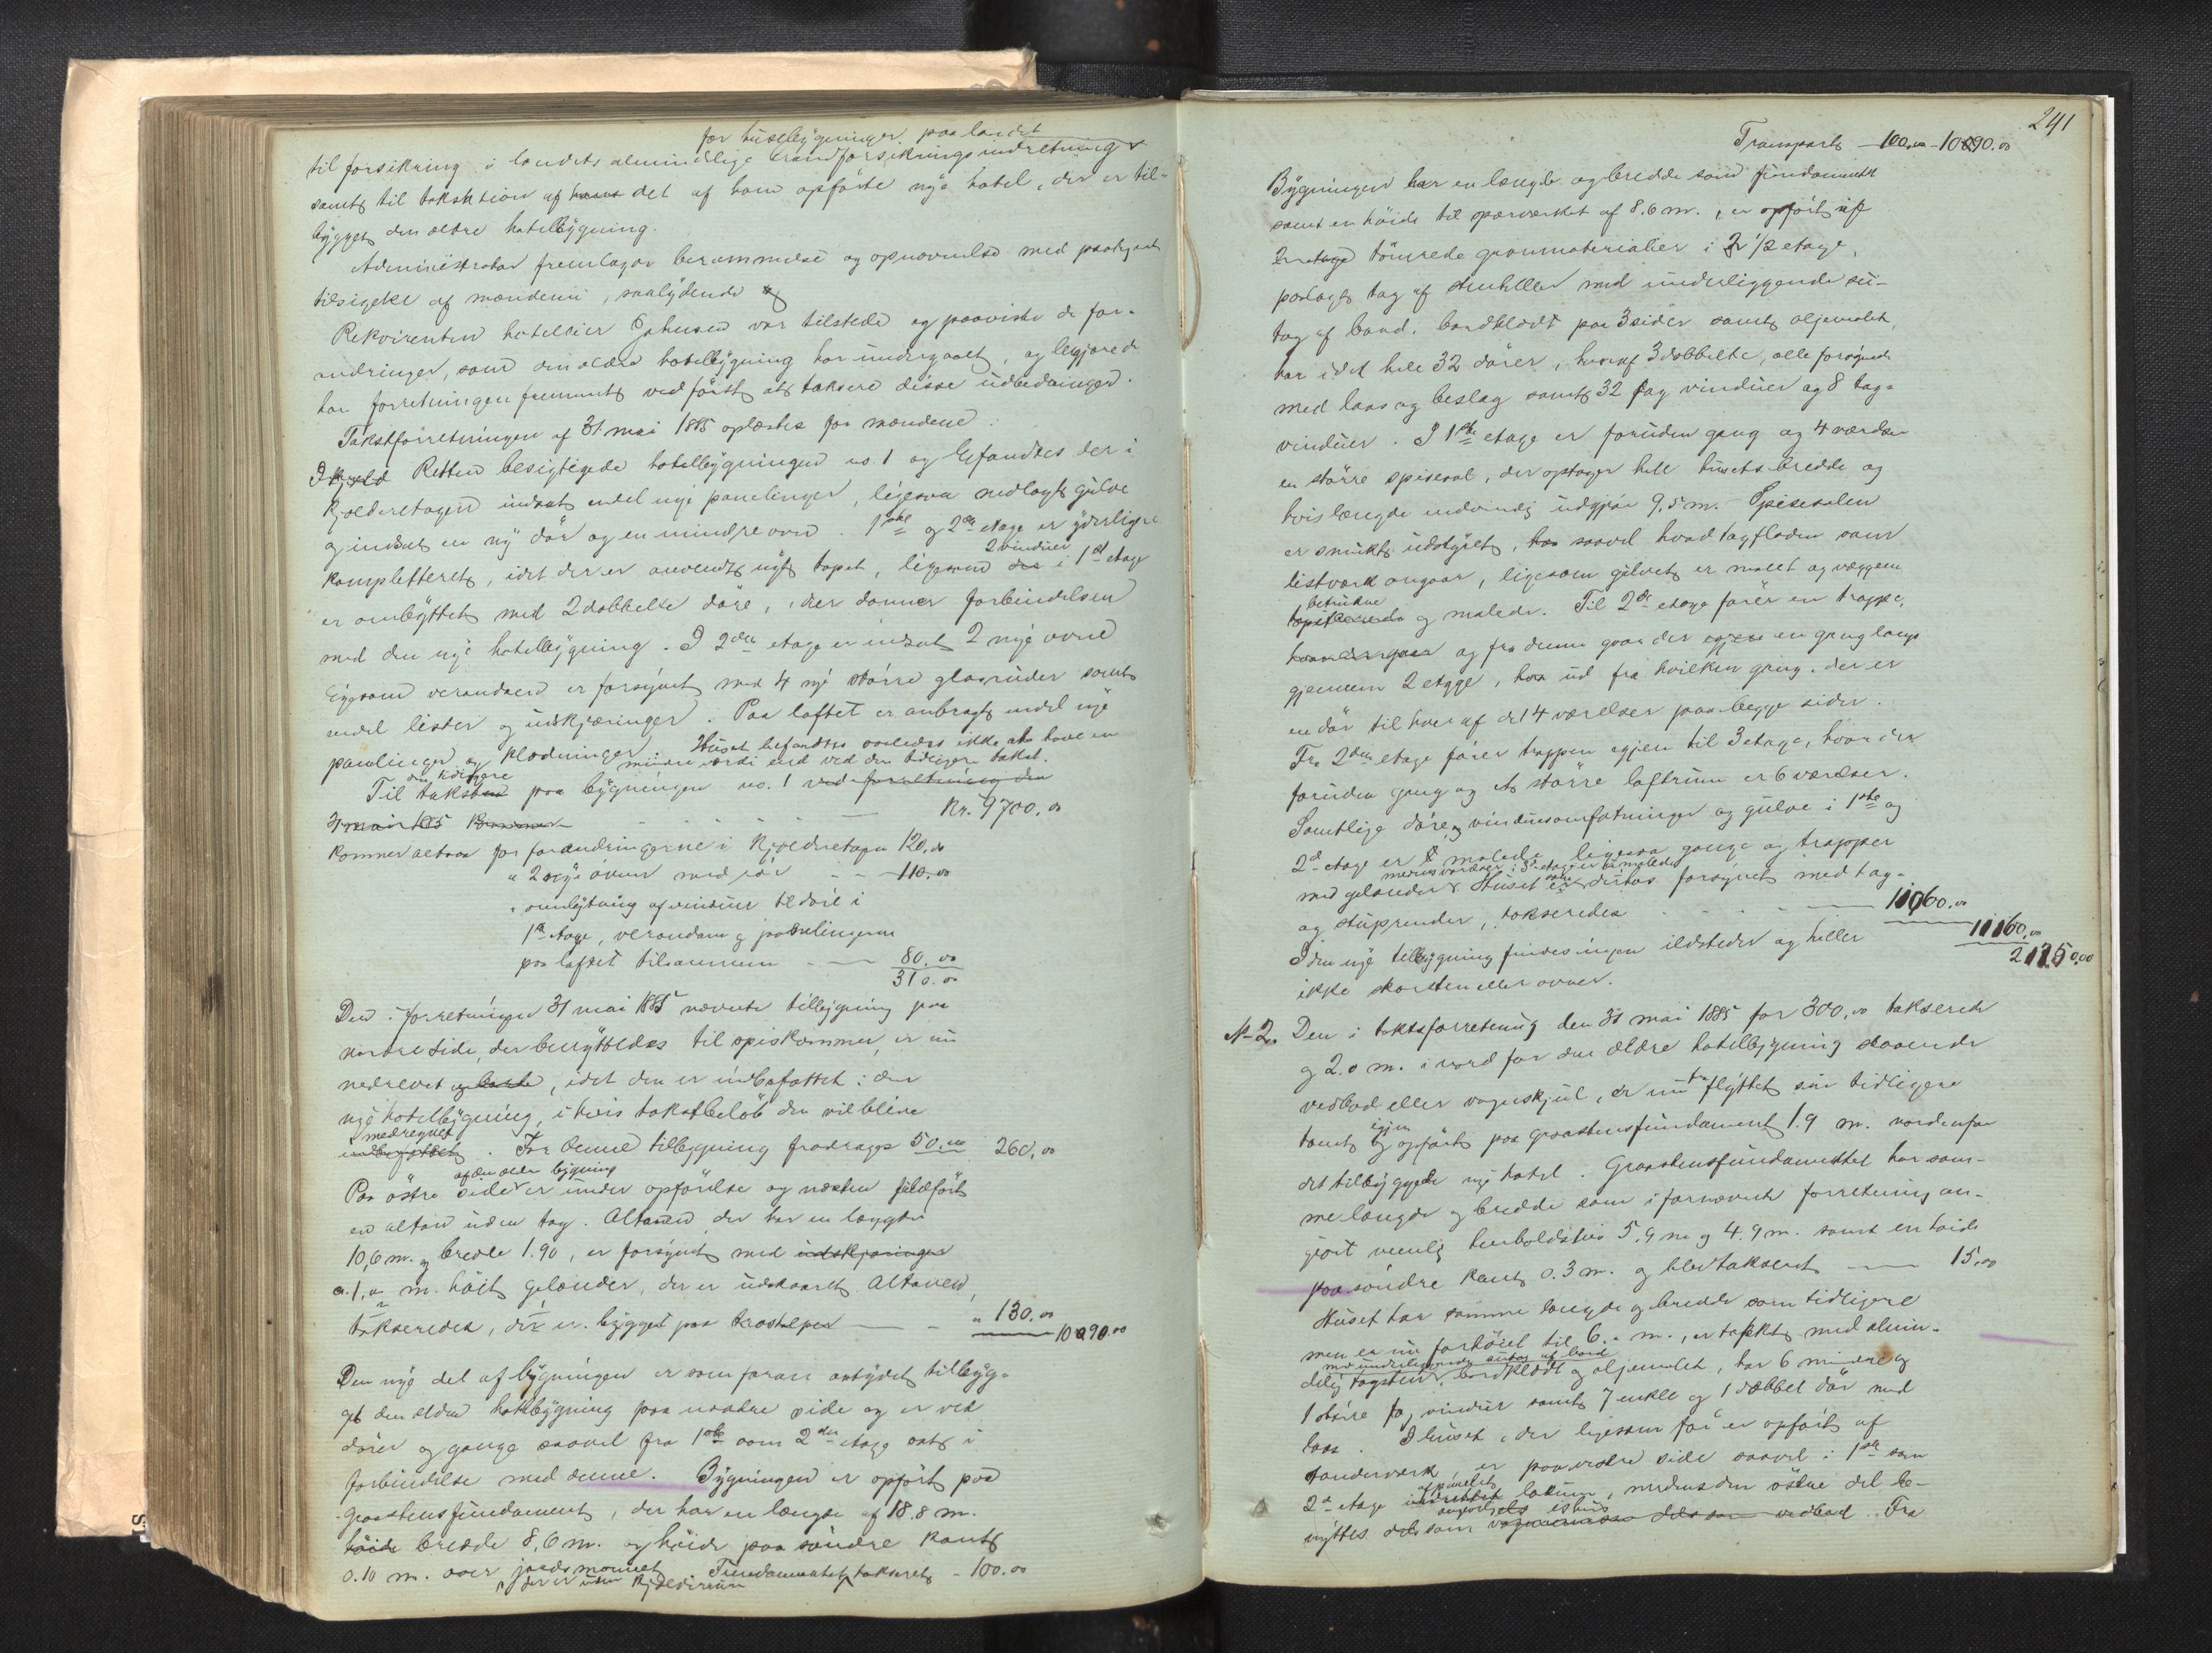 for husebygninger paa landet
til forsikring i landets almindelige brandforsikringsindretning
samt til takstion af hans det af ham opførte nye hotel, der er til-
bygget den ældre hotelbygning.
Administrator fremlagde berammelse og opnævnelse med paategnet
tilsigelse af mændene, saalydende
Rekvirenten hotelier Johnsen var tilstede og paaviste de for-
andringer, som den ældre hotelbygning har undergaaet, og begjærede
har forretningen fremmet ved først at taksere disse udbedringer.
Takstforretningen af 31 mai 1885 oplæstes for mændene.
I kjæld Retten besigtigede hotelbygningen no. 1 og befandtes der i
kjælderetagen indsat endel nye panelinger, ligesaa nedlagt gulve
og indsat en ny dør og en mindre ovn. 1ste og 2den etage er yderligere
kompletteret, idet der er anvendt nyt tapet, ligesom der 2 vinduer i 1ste etage
er ombyttet med 2 dobbelte døre, der danner forbindelsen
med den nye hotelbygning. I 2den etage er indsat 2 nye ovne
ligesom verandaen er forsynet med 4 nye større glasruder samt
endel lister og udskjæringer. Paa loftet er anbragt endel nye
panelinger og klædninger. Huset befandtes saaledes ikke at have en
mindre værdi end ved den tidligere takst.
Til den tidligere taksten paa bygningen no. 1 ved forretning den
31 mai 1885 Kommer - - - - - Kr. 9700,00
kommer altsaa for forandringerne i kjælderetagen 120,00
" 2 nye ovne med rør - - 110,00
" ombytning af vinduer til døre i
1ste etage, verandaen og panelingerne
paa loftet tilsammen - - 80,00
310,00
Den i forretningen 31 mai 1885 nævnte tilbygning paa
nordre side, der benyttedes til spiskammer, er nu
nedrevet, idet den er indbefattet i den
nye hotelbygning, i hvis takstbeløb den vil blive
medregnet
indbefattet. For denne tilbygning fradrages 50,00 260,00
Paa østre side af den ældre bygning er under opførelse og næsten fuldført
en altan uden tag. Altanen der har en længde
10,6 m. og bredde 1.90, er forsynet med udskjæringer
a. 1, m. høit gelænder, der er udskaaret Altanen,
takseredes, der er bygget paa træstolper - - " 130,00
10090.00
Den nye del af bygningen er som foran antydet tilbyg-
get den ældre hotelbygning paa nordre side og er ved
dører og gange saavel fra 1ste som 2den etage sat i
forbindelse med denne. Bygningen er opført paa
graastensfundament, der har en længde af 18.8 m.
høide bredde 8,6 m. og høide paa søndre kant
0.10 m. over jordsmonnet Fundamentet takseret - 100.00
der er uden kjælderrum
241
Transport - 100,00 - 10090.00
Bygningen har en længde og bredde som fundamentet
samt en høide til sparværket af 8.6 m., er opført af
2 etage tømrede granmaterialier i 2 1/2 etage,
paalagt tag af stenheller med underliggende su-
tag af bord. bordklædt paa 3 sider samt oljemalet,
har i det hele 32 dører, hvoraf 3 dobbelte, alle forsynede
med laas og beslag samt 32 fag vinduer og 8 tag-
vinduer. I 1ste etage er foruden gang og 4 værelser
en større spisesal, der optager hele husets bredde og
hvis længde indvendig udgjør 9,5 m. Spisesalen
er smukt udstyret, har saavel hvad tagfladen som
listværk angaar, ligesom gulvet er malet og væggene
betrukne
tapetserede og malede. Til 2den etage fører en trappe,
hvor der gaar og fra denne gaar der igjen en gang langs
gjennem 2 etage, hvor ud fra hvilken gang der er
en dør til hver af de 14 værelser paa begge sider.
Fra 2den etage fører trappen igjen til 3 etage, hvor der
foruden gang og et større loftrum er 6 værelser.
Samtlige døre og vinduesomfatninger og gulve i 1ste og
2den etage er malede ligesaa gange og trapper
medens værelser i 3die etage er umalede
med gelænder. Huset som er desuden forsynet med tag-
og stuprender, takseredes - - - - - 11060.00
I den nye tilbygning findes ingen ildsteder og heller 11160,00
ikke skorsten eller ovner. 21250,00
No 2. Den i takstforretning den 31 mai 1885 for 300,00 takserede
og 2.0 m. i nord for den ældre hotelbygning staaende
vedbod eller vognskjul, er nu fra flyttet sin tidligere
tomt og igjen opført paa graastensfundament 1.9 m. nordenfor
det tilbyggede nye hotel. Graastensfundamentet har sam-
me længde og bredde som i fornævnte forretning an-
ført nemlig henholdsvis 5,9 m og 4.9 m. samt en høide
paa søndre kant 0.3 m. og blev takseret - - 15,00
Huset har samme længde og bredde som tidligere
men er nu forhøiet til 6. m., er tækket med almin-
med underliggende sutag af bord
delig tagsten, bordklædt og oljemalet, har 6 mindre og
1 større fag vinduer samt 7 enkle og 1 dobbel dør med
laas. I huset, der ligesom før er opført af
standerværk er paa vestre side saavel i 1ste som
2den etage indrettet afpanelet lokum, medens den østre del be-
nyttes dels som ishus vedbod. Fra